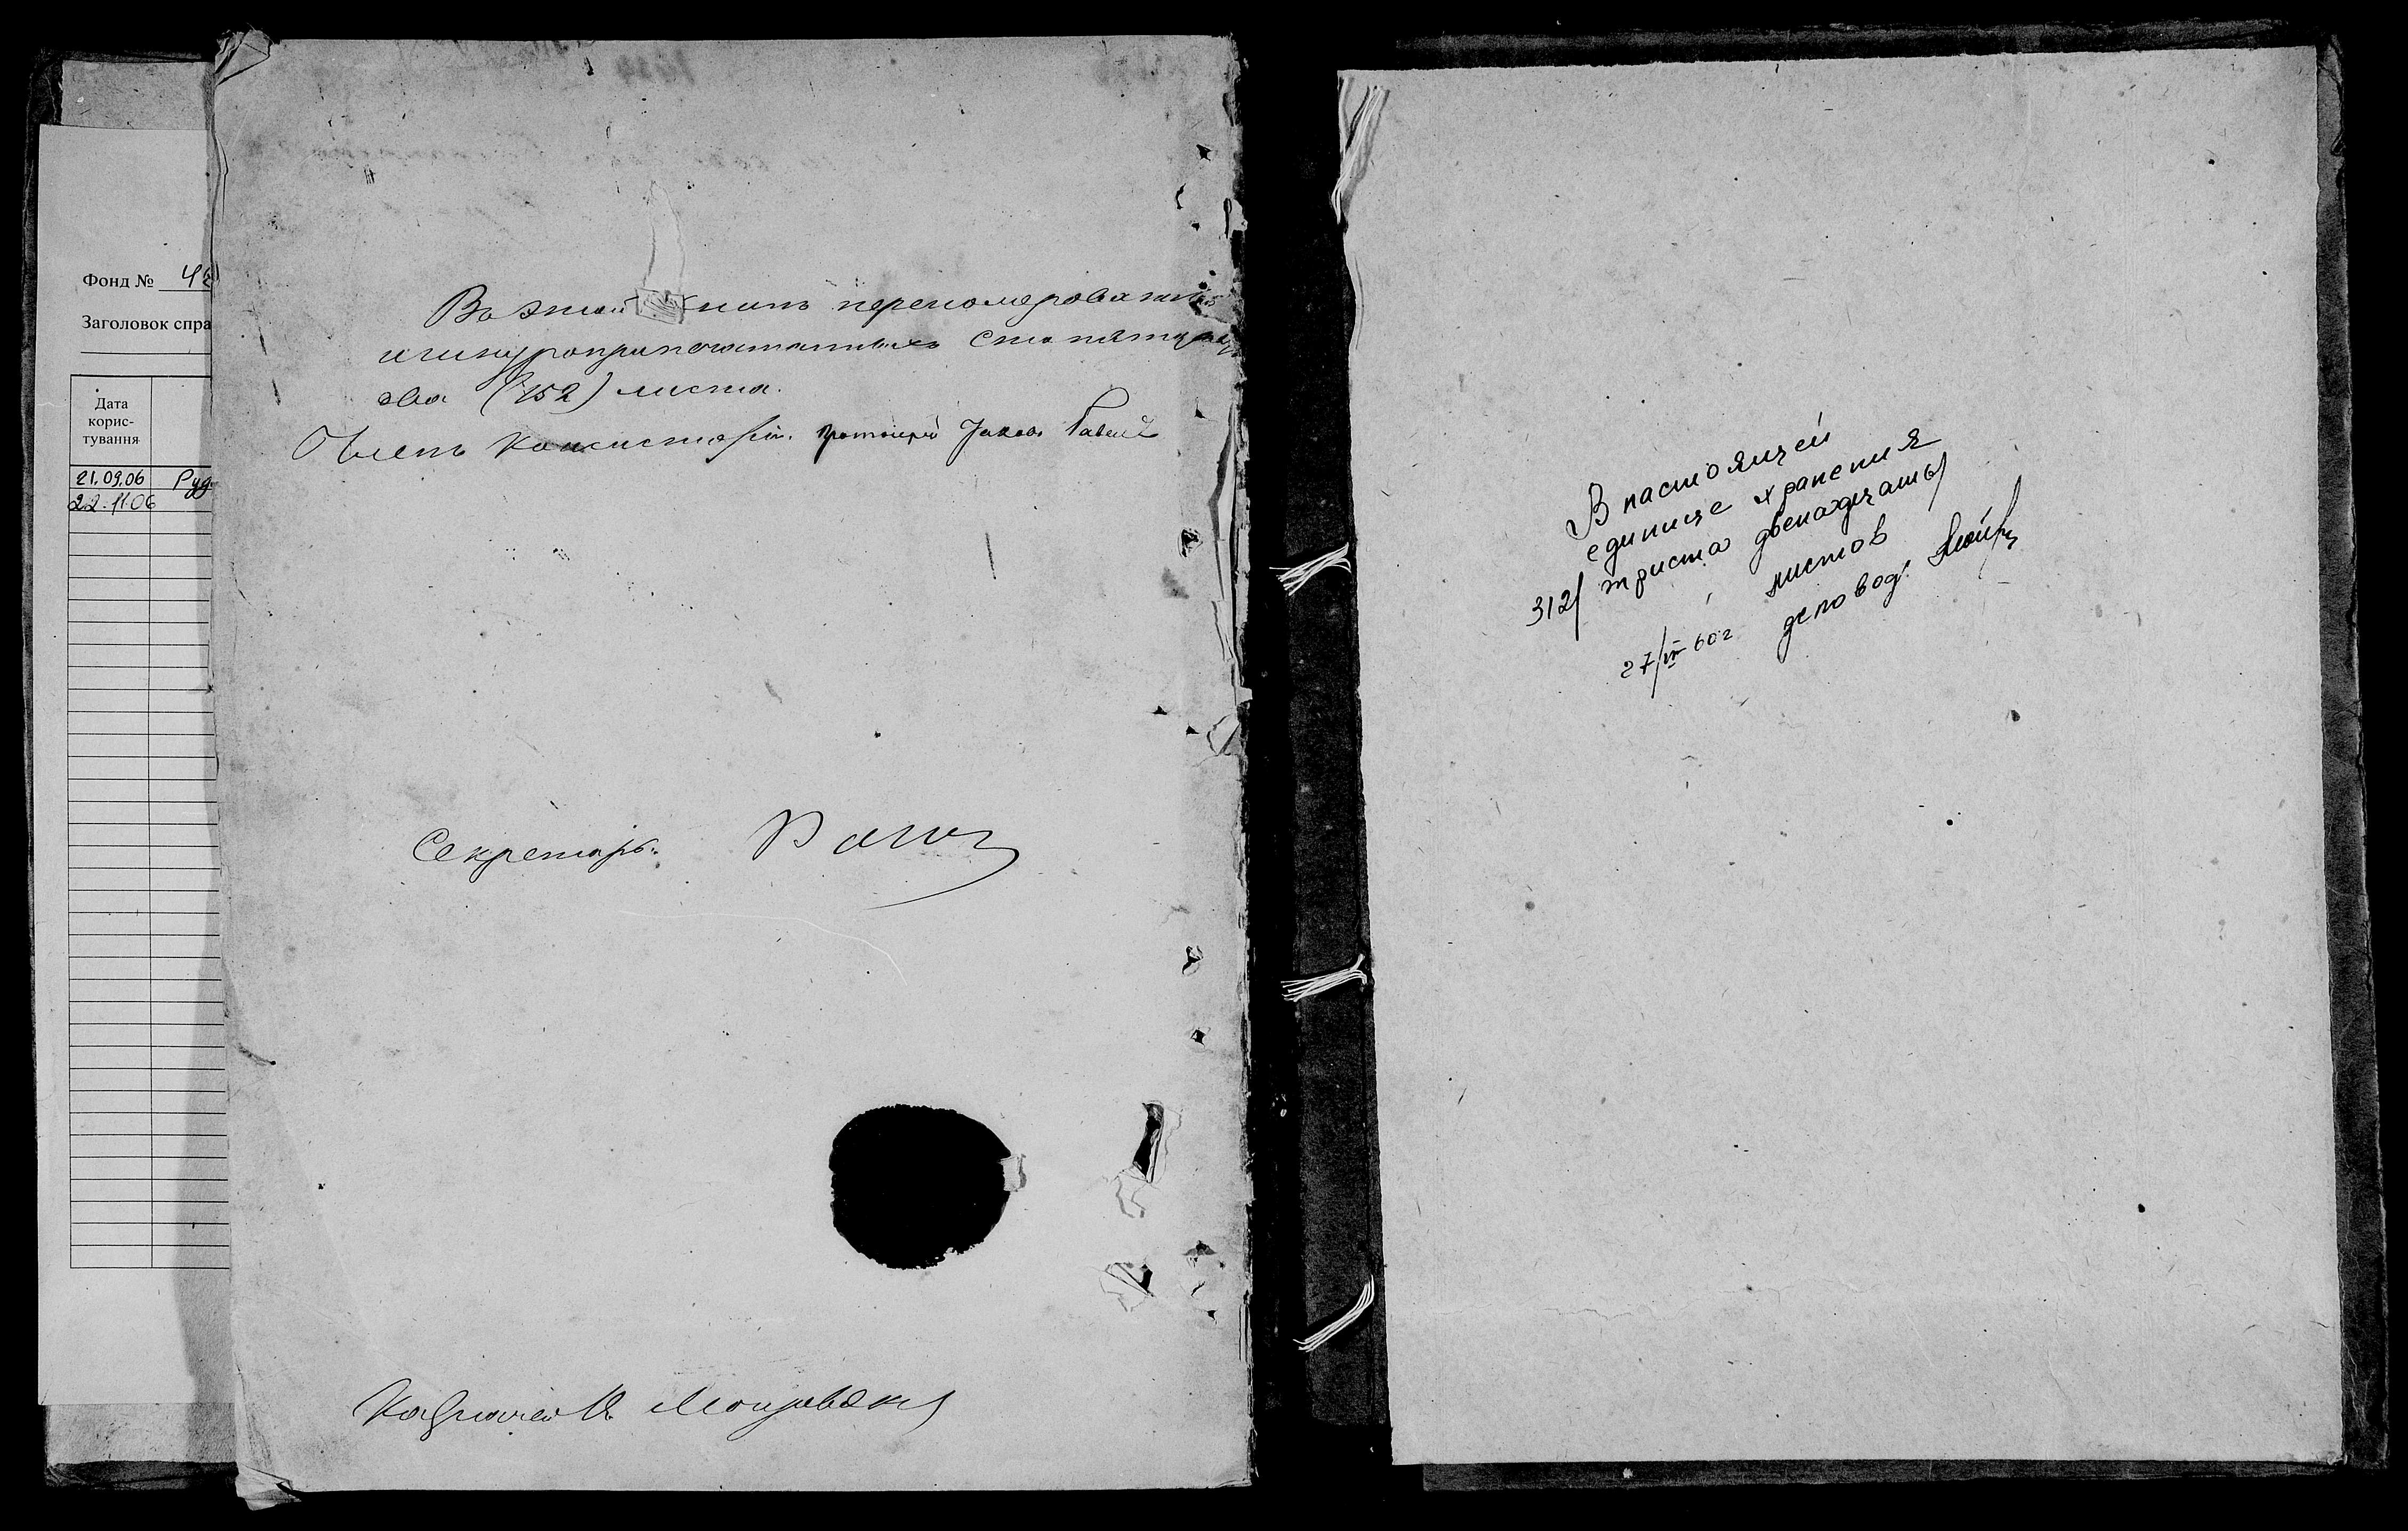 Фонд №
Заголовок спра
Дата
корис-
тування
21.09.06 Руд
22.11.06
Въ этой книгѣ перенумерованныхъ
и шнуроприпечатанныхъ сто пятьдесятъ
два (152) листа.
Членъ Консисторіи, Протоіерей Іаковъ
Секретарь
Казначей
В настоящей
единице хранения
312/ триста двенадцать/
листов
27/IV 60 г деловод.